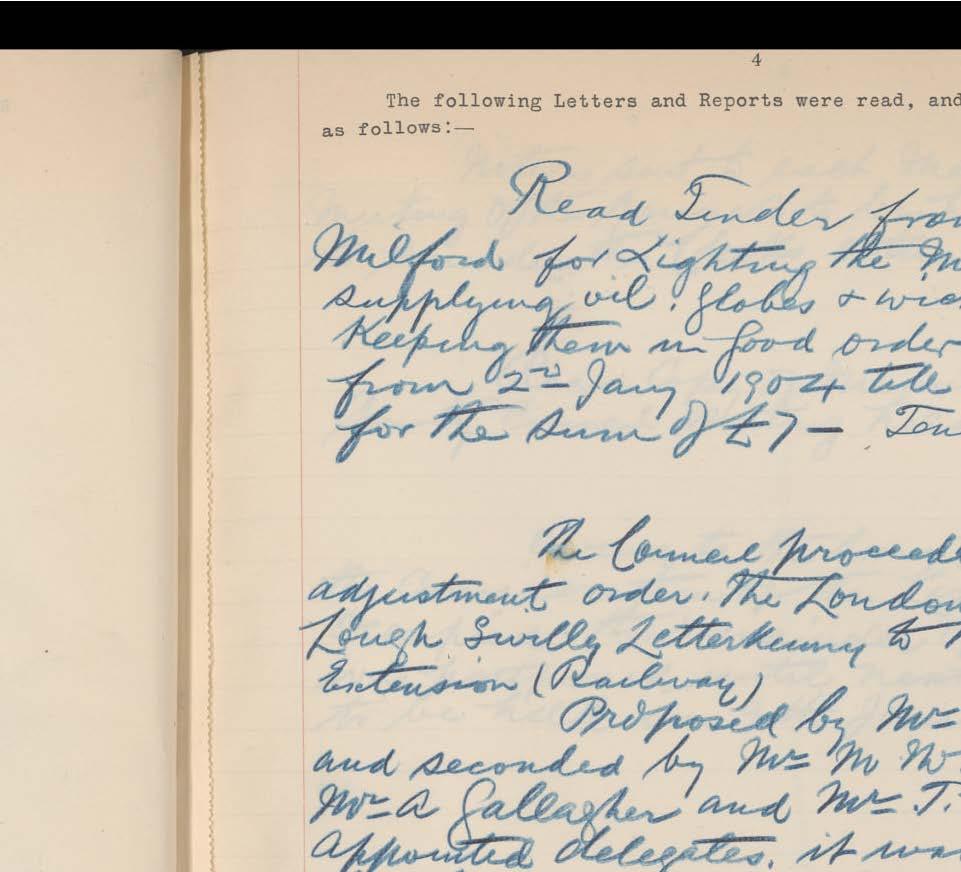 4
The following Letters and Reports were read, and
as follows:—
Read Tender from
Milford for Lighting the
supplying oil. globes &
Keeping them in good order
from 2nd Jany 1904 till
for the sum of £7 —
The Council proceede
adjustment order. The London
Lough Swilly Letterkenny to
Extension (Railway)
Proposed by Mr
and seconded by Mr M Mc
Mr A Gallagher and Mr T.
appointed delegates. it was